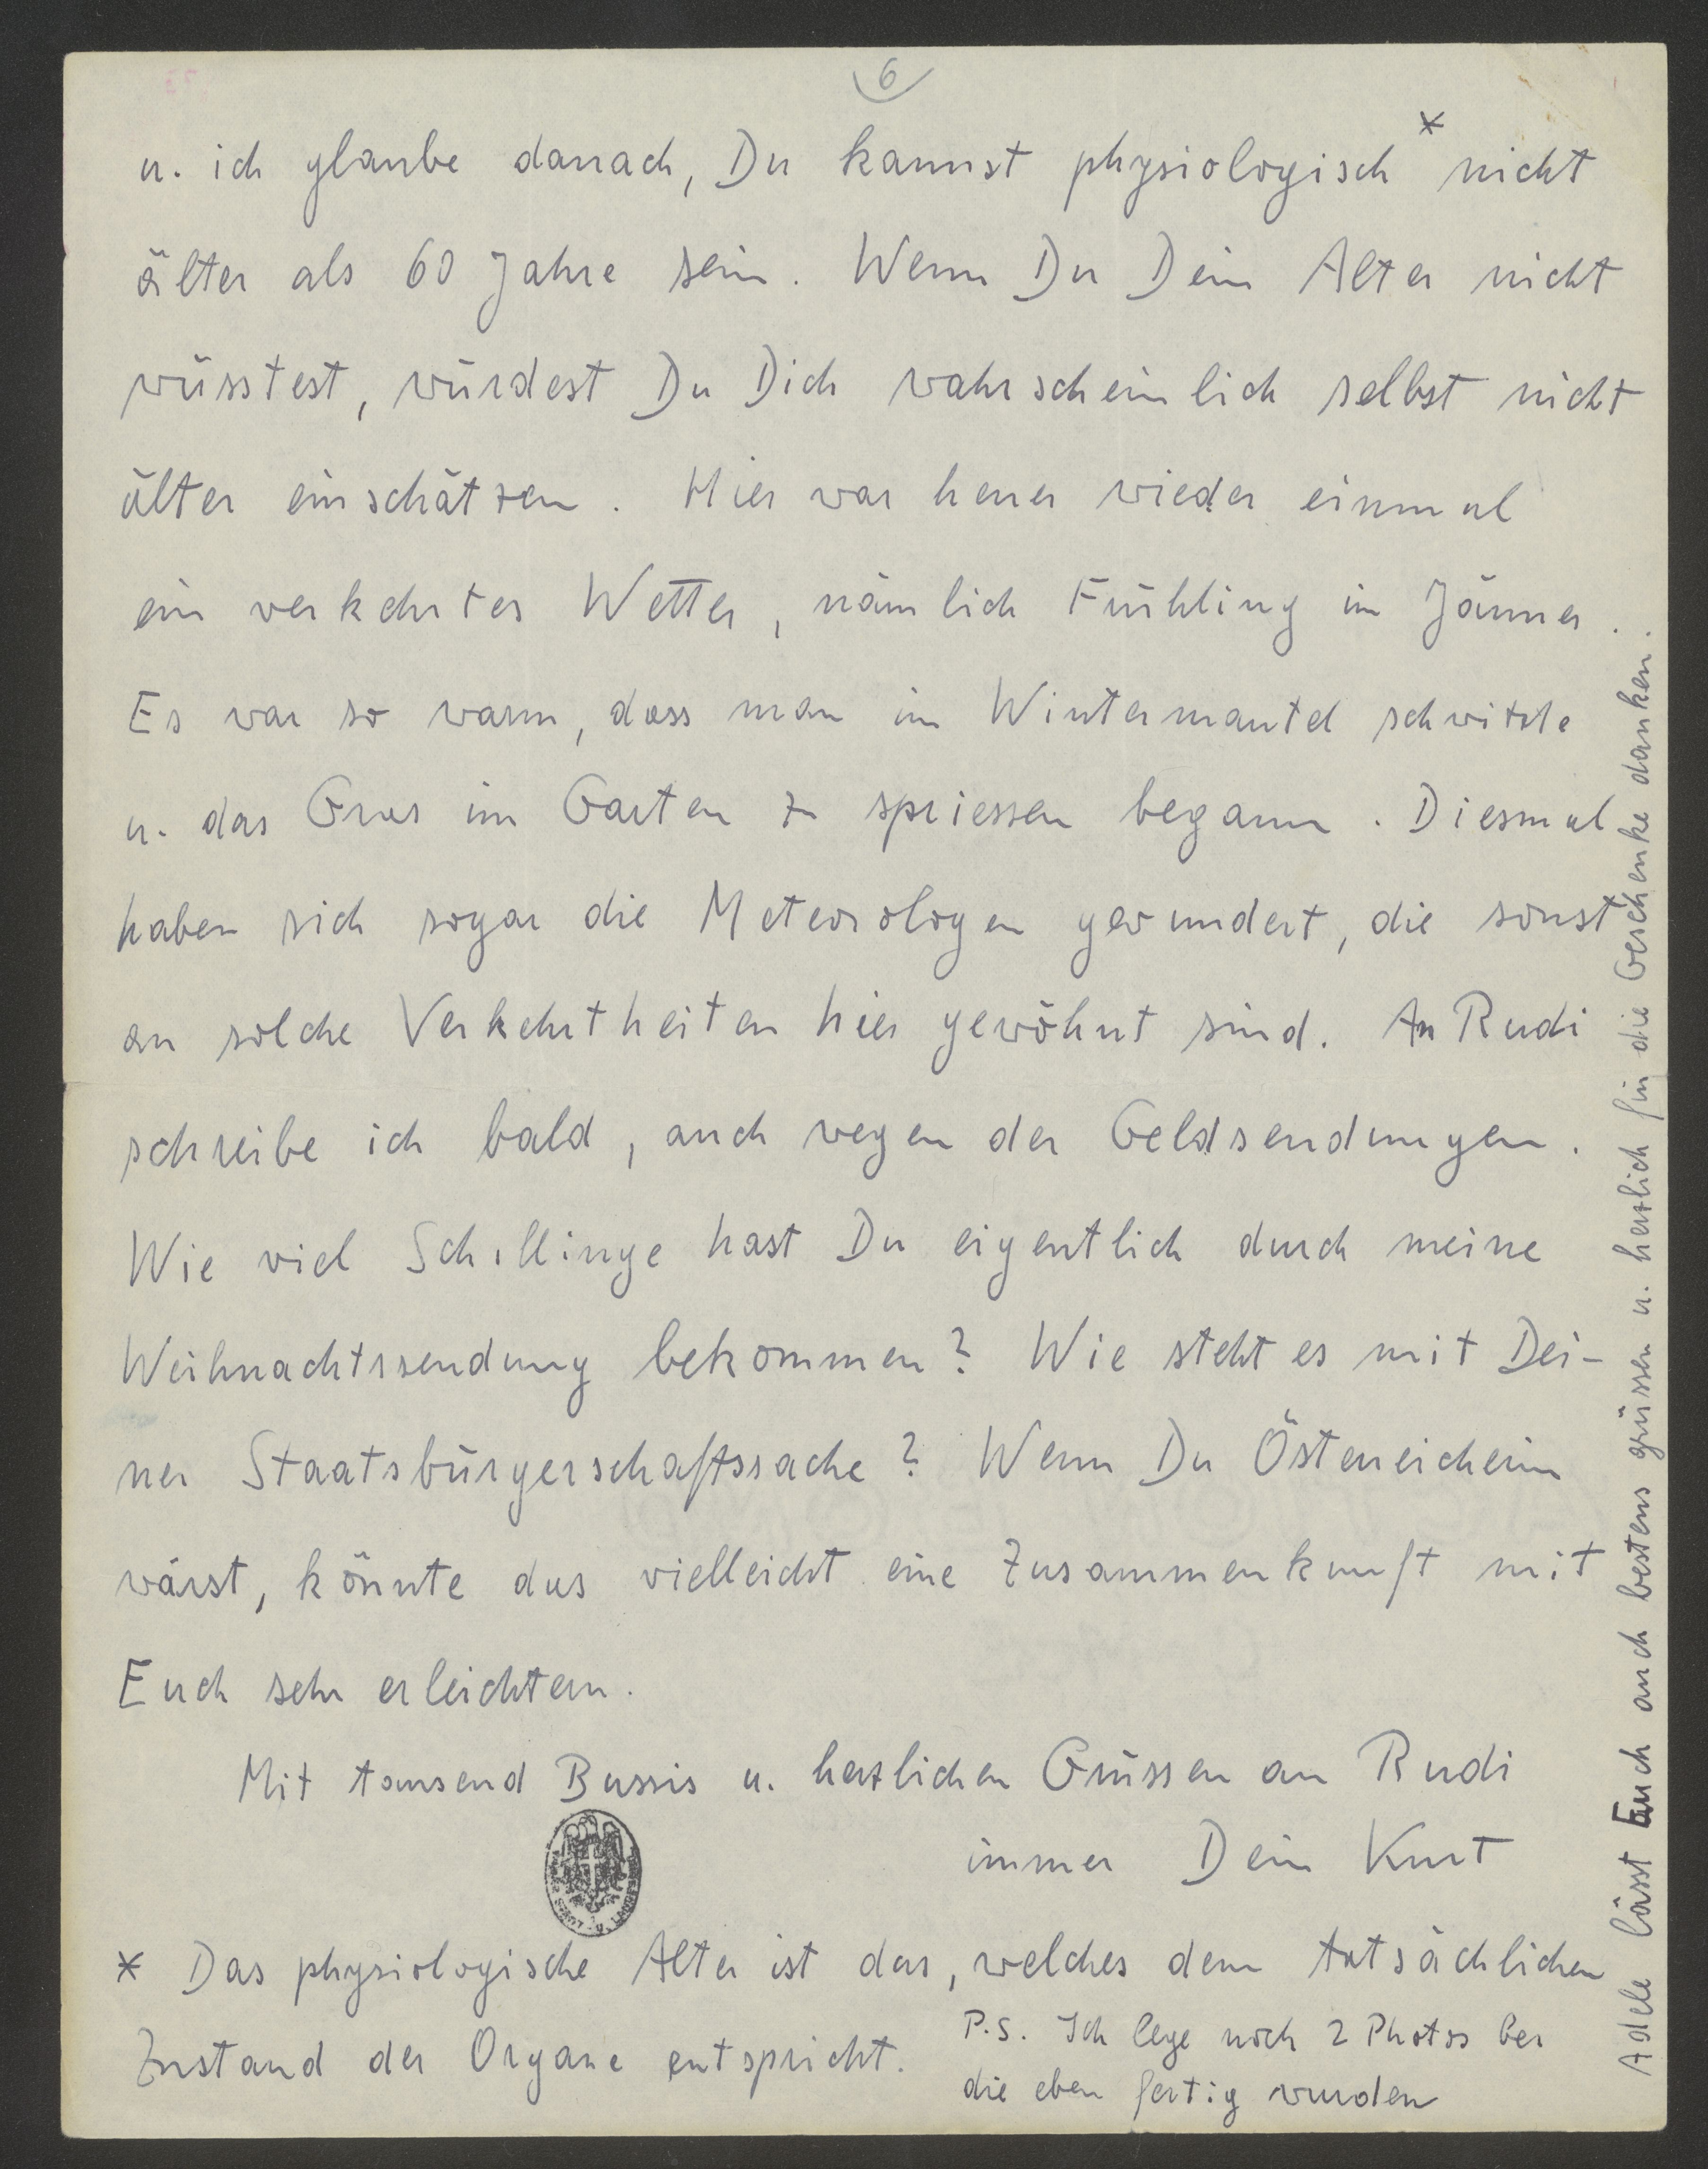 6
u. ich glaube danach, Du kannst physiologisch* nicht
älter als 60 Jahre sein. Wenn Du Dein Alter nicht
wüsstest, würdest Du Dich wahrscheinlich selbst nicht
älter einschätzen. Hier war heuer wieder einmal
ein verkehrtes Wetter, nämlich Frühling im Jänner.
Es war so warm, dass man im Wintermantel schwitzte
u. das Gras im Garten zu spriessen begann. Diesmal
haben sich sogar die Meteorologen gewundert, die sonst
an solche Verkehrtheiten hier gewöhnt sind. An Rudi
schreibe ich bald, auch wegen der Geldsendungen.
Wie viel Schillinge hast Du eigentlich durch meine
Weihnachtssendung bekommen? Wie steht es mit Dei-
ner Staatsbürgerschaftssache? Wenn Du Österreicherin
wärst, könnte das vielleicht eine Zusammenkunft mit
Euch sehr erleichtern.
Mit tausend Bussis u. herzlichen Grüssen an Rudi
immer Dein Kurt
* Das physiologische Alter ist das, welches dem tatsächlichen
Zustand der Organe entspricht.
P.S. Ich lege noch 2 Photos bei
die eben fertig wurden
Adele lässt Euch auch bestens grüssen u. herzlich für die Geschenke danken.